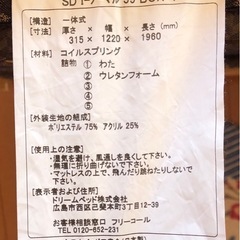 【構造】 一体式
【寸法】 厚さ × 幅 × 長さ (mm)
315 × 1220 × 1960
【材料】 コイルスプリング
詰物 ① わた
② ウレタンフォーム
③
④
⑤
【外装生地の組成】
ポリエステル 75% アクリル 25%
【使用上の注意】
・湿気を避け、風通しを良くして下さい。
・マットレスの上で、飛んだり跳ねたりしないで下さい。
【表示者および住所】
ドリームベッド株式会社
広島市西区己斐本町3丁目12-39
お客様相談窓口 フリーコール
TEL 0120-652-231